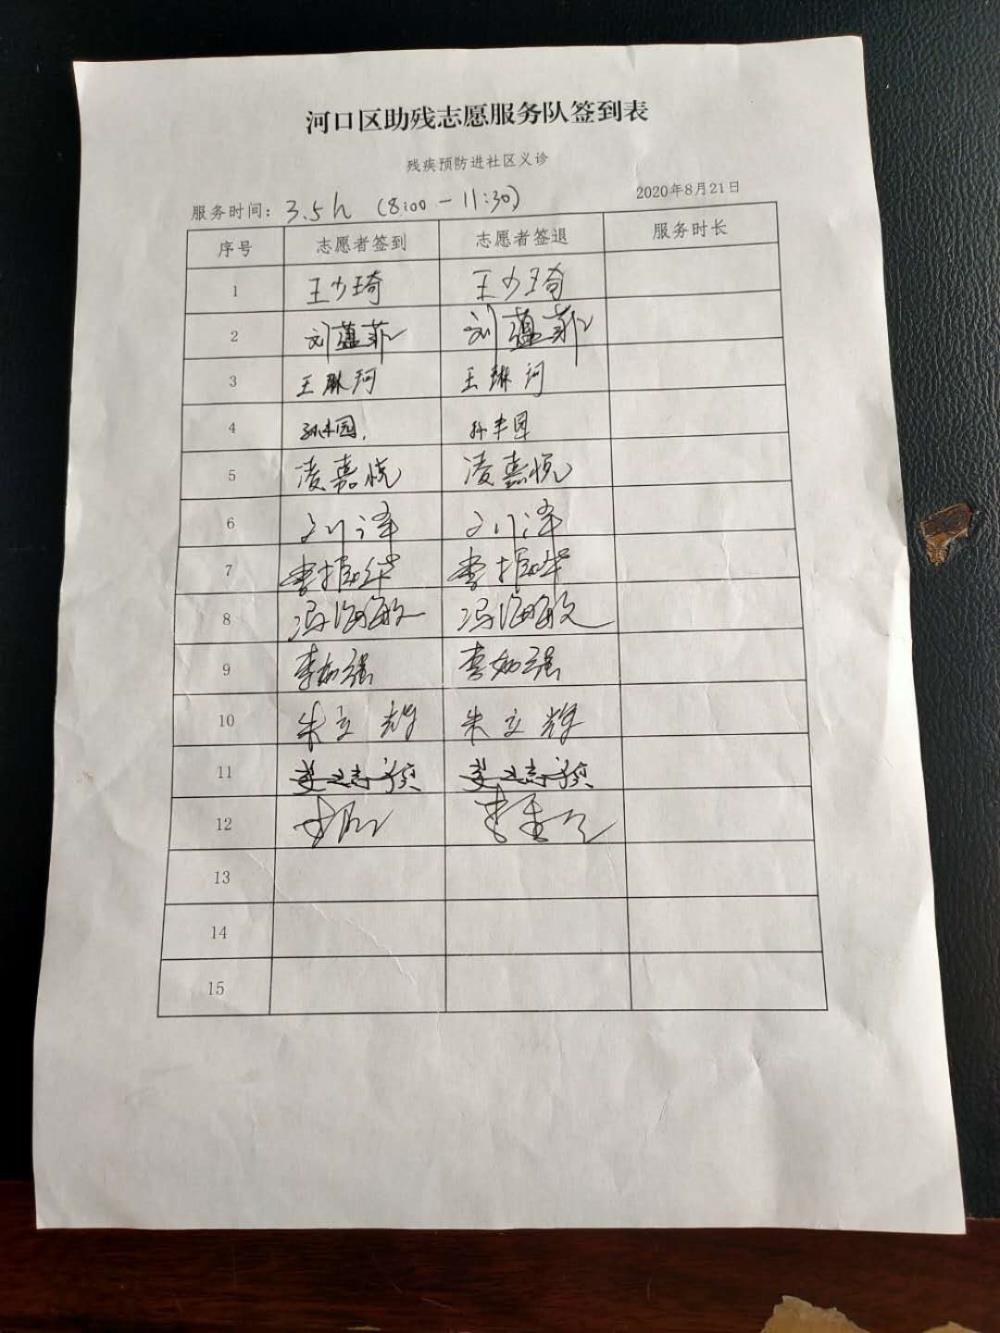 河口区助残志愿服务队签到表
残疾预防进社区义诊
2020年8月21日
服务时间：3.5h (8:00－11:30)
序号 志愿者签到 志愿者签退 服务时长
1 王少琦 王少琦
2 刘蕴菲 刘蕴菲
3 王琳珂 王琳珂
4 孙丰园 孙丰园
5 凌嘉悦 凌嘉悦
6 刘泽 刘泽
7 李振华 李振华
8 冯海敏 冯海敏
9 李如强 李如强
10 朱立辉 朱立辉
11
12 李
13
14
15